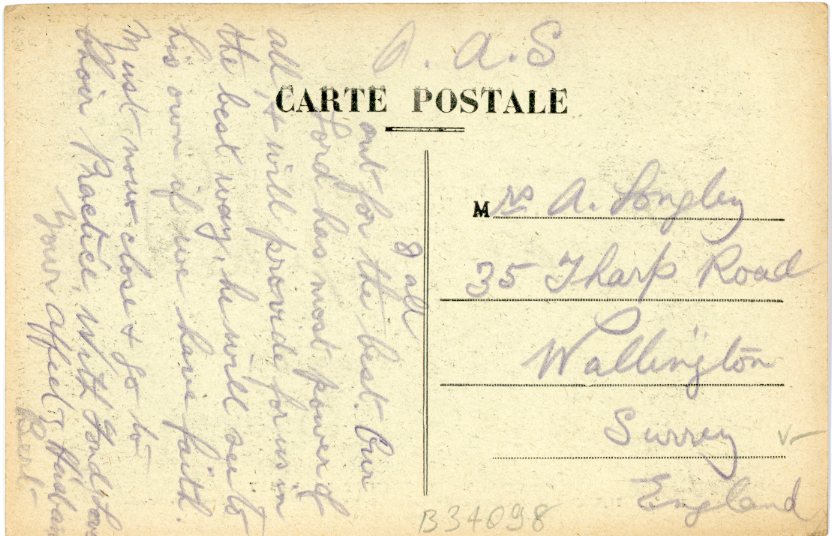 O. A. S
CARTE POSTALE
8 all
out for the best. Our
Lord has most power of
all + will provide for us in
the best way, he will see to
his own if we have faith.
Must now close + go to
choir Practice, With Fond Love
Your affect. Husband
Bert
Mrs A. Longley
35 Tharp Road
Wallington
Surrey
England
B34098